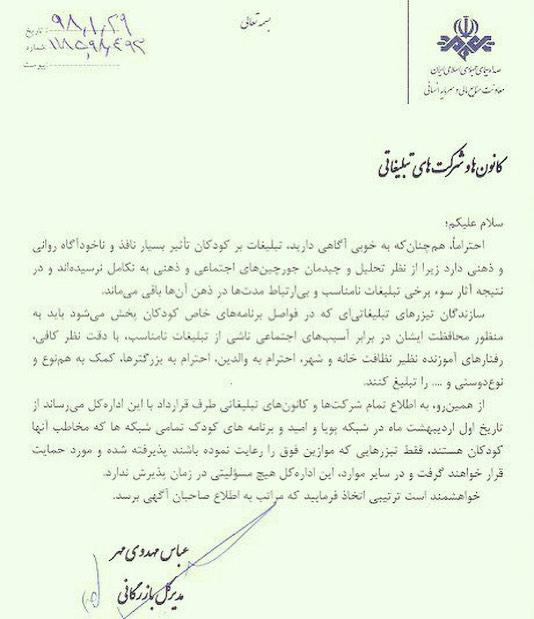 بسمه تعالی
تاریخ: ۹۸,۱,۲۹
شماره
پیوست
صدا و سیمای جمهوری اسلامی ایران
معاونت منابع مالی و سرمایه انسانی
کانون ها و شرکت های تبلیغاتی
سلام علیکم؛
احتراماً، هم‌چنان‌که به خوبی آگاهی دارید، تبلیغات بر کودکان تأثیر بسیار نافذ و ناخودآگاه روانی
و ذهنی دارد زیرا از نظر تحلیل و چیدمان جورچین‌های اجتماعی و ذهنی به تکامل نرسیده‌اند و در
نتیجه آثار سوء برخی تبلیغات نامناسب و بی‌ارتباط مدت‌ها در ذهن آن‌ها باقی می‌ماند.
سازندگان تیزرهای تبلیغاتی‌ای که در فواصل برنامه‌های خاص کودکان پخش می‌شود باید به
منظور محافظت ایشان در برابر آسیب‌های اجتماعی ناشی از تبلیغات نامناسب، با دقت نظر کافی،
رفتارهای آموزنده نظیر نظافت خانه و شهر، احترام به والدین، احترام به بزرگترها، کمک به هم‌نوع و
نوع‌دوستی و .... را تبلیغ کنند.
از همین‌رو، به اطلاع تمام شرکت‌ها و کانون‌های تبلیغاتی طرف قرارداد با این اداره‌کل می‌رساند از
تاریخ اول اردیبهشت ماه در شبکه پویا و امید و برنامه های کودک تمامی شبکه ها که مخاطب آنها
کودکان هستند، فقط تیزرهایی که موازین فوق را رعایت نموده باشند پذیرفته شده و مورد حمایت
قرار خواهند گرفت و در سایر موارد، این اداره‌کل هیچ مسؤلیتی در زمان پذیرش ندارد.
خواهشمند است ترتیبی اتخاذ فرمایید که مراتب به اطلاع صاحبان آگهی برسد.
عباس مهدوی مهر
مدیرکل بازرگانی